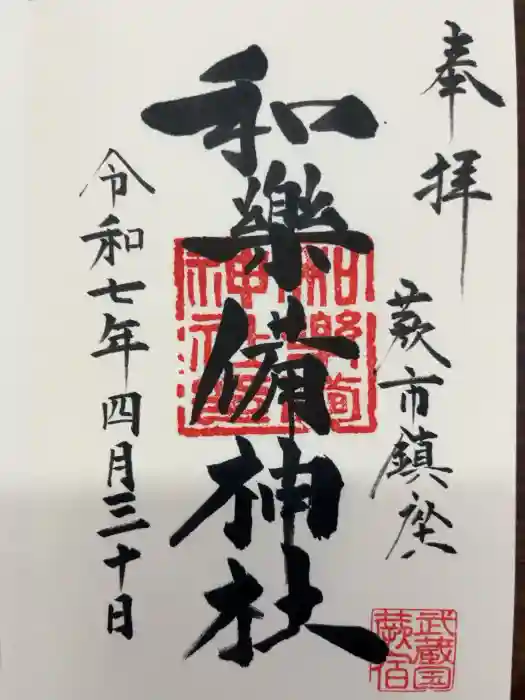 奉拝
蕨市鎮座
和樂備神社
令和七年四月三十日
武蔵国
蕨宿